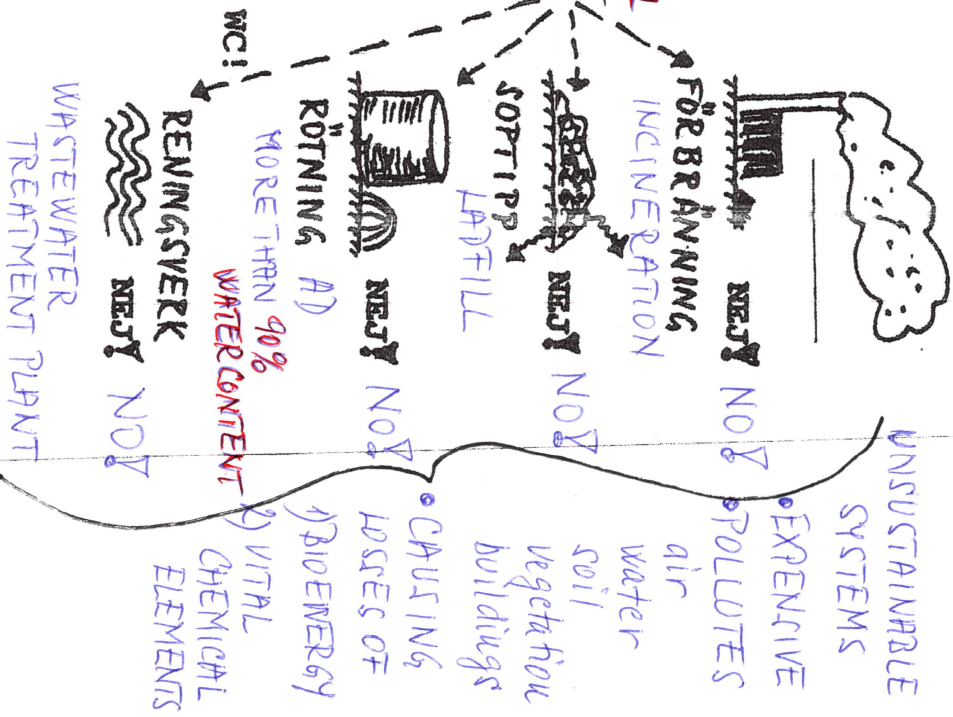 NEJ! NO!
FÖRBRÄNNING
INCINERATION
NEJ! NO!
SOPTIPP
LADFILL
NEJ! NO!
RÖTNING AD
MORE THAN 90%
WATER CONTENT
WC!
RENINGSVERK
NEJ! NO!
WASTEWATER
TREATMENT PLANT
UNSUSTAINABLE
SYSTEMS
• EXPENSIVE
• POLLUTES
air
water
soil
vegetation
buildings
• CAUSING
LOSSES OF
1) BIOENERGY
2) VITAL
CHEMICAL
ELEMENTS